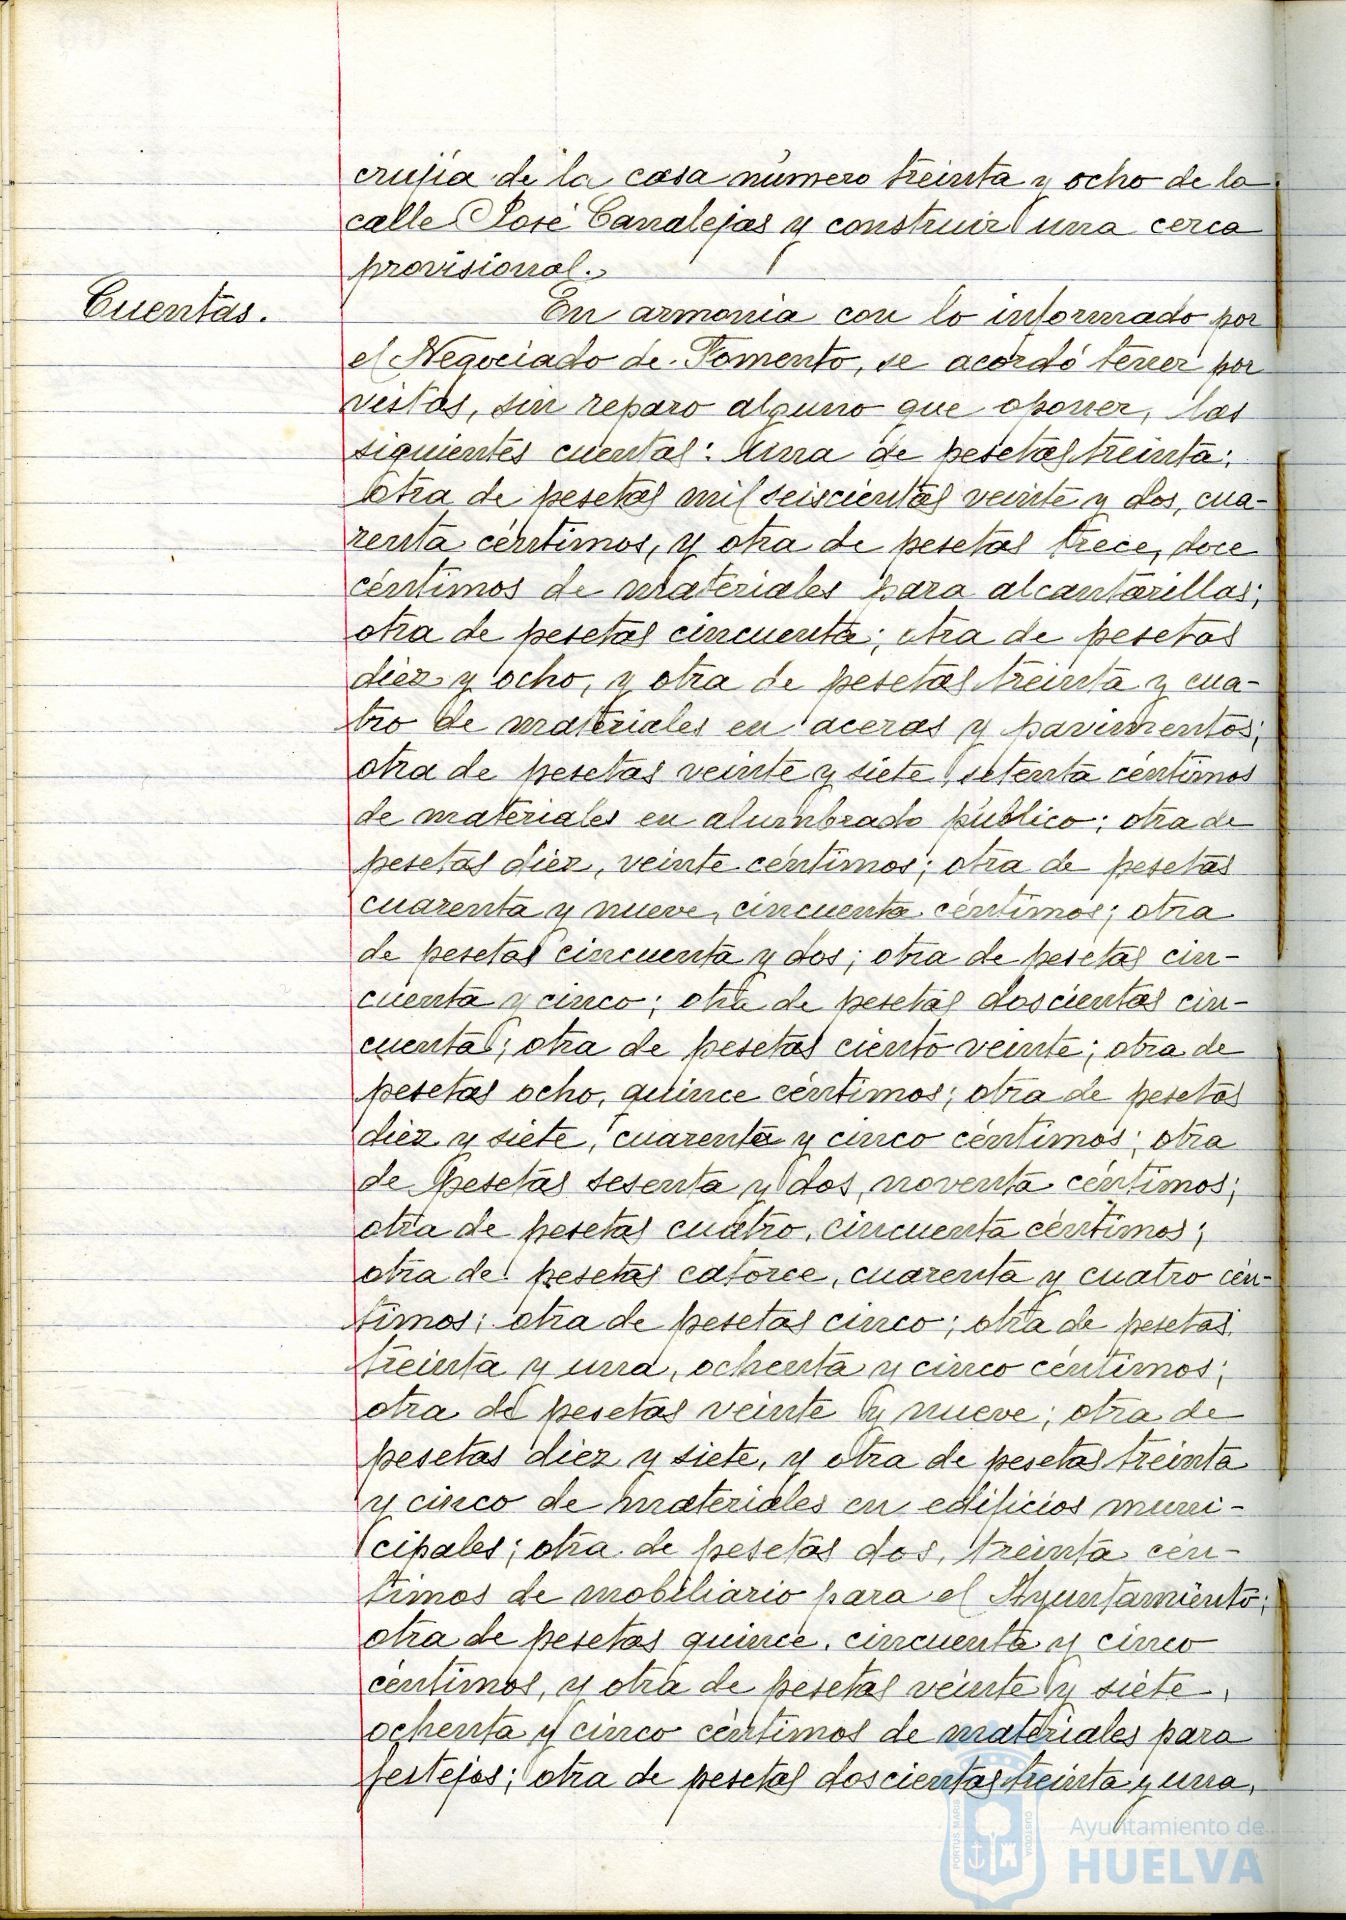 crujía de la casa número treinta y ocho de la
calle José Canalejas y construir una cerca
provisional.
Cuentas.
En armonia con lo informado por
el Negociado de Fomento, se acordó tener por
vistas, sin reparo alguno que oponer, las
siguientes cuentas: Una de pesetas treinta;
otra de pesetas mil seiscientas veinte y dos, cua-
renta céntimos, y otra de pesetas trece, doce
céntimos de materiales para alcantarillas;
otra de pesetas cincuenta; otra de pesetas
diez y ocho, y otra de pesetas treinta y cua-
tro de materiales en aceras y pavimentos;
otra de pesetas veinte y siete, setenta céntimos
de materiales en alumbrado público; otra de
pesetas diez, veinte céntimos; otra de pesetas
cuarenta y nueve, cincuenta céntimos; otra
de pesetas cincuenta y dos; otra de pesetas cin-
cuenta y cinco; otra de pesetas doscientas cin-
cuenta; otra de pesetas ciento veinte; otra de
pesetas ocho, quince céntimos; otra de pesetas
diez y siete, cuarenta y cinco céntimos; otra
de pesetas sesenta y dos, noventa céntimos;
otra de pesetas cuatro, cincuenta céntimos;
otra de pesetas catorce, cuarenta y cuatro cén-
timos; otra de pesetas cinco; otra de pesetas
treinta y una, ochenta y cinco céntimos;
otra de pesetas veinte y nueve; otra de
pesetas diez y siete, y otra de pesetas treinta
y cinco de materiales en edificios muni-
cipales; otra de pesetas dos, treinta cén-
timos de mobiliario para el Ayuntamiento;
otra de pesetas quince, cincuenta y cinco
céntimos, y otra de pesetas veinte y siete,
ochenta y cinco céntimos de materiales para
festejos; otra de pesetas doscientas treinta y una,
PORTUS MARIS
CUSTODIA
Ayuntamiento de
HUELVA